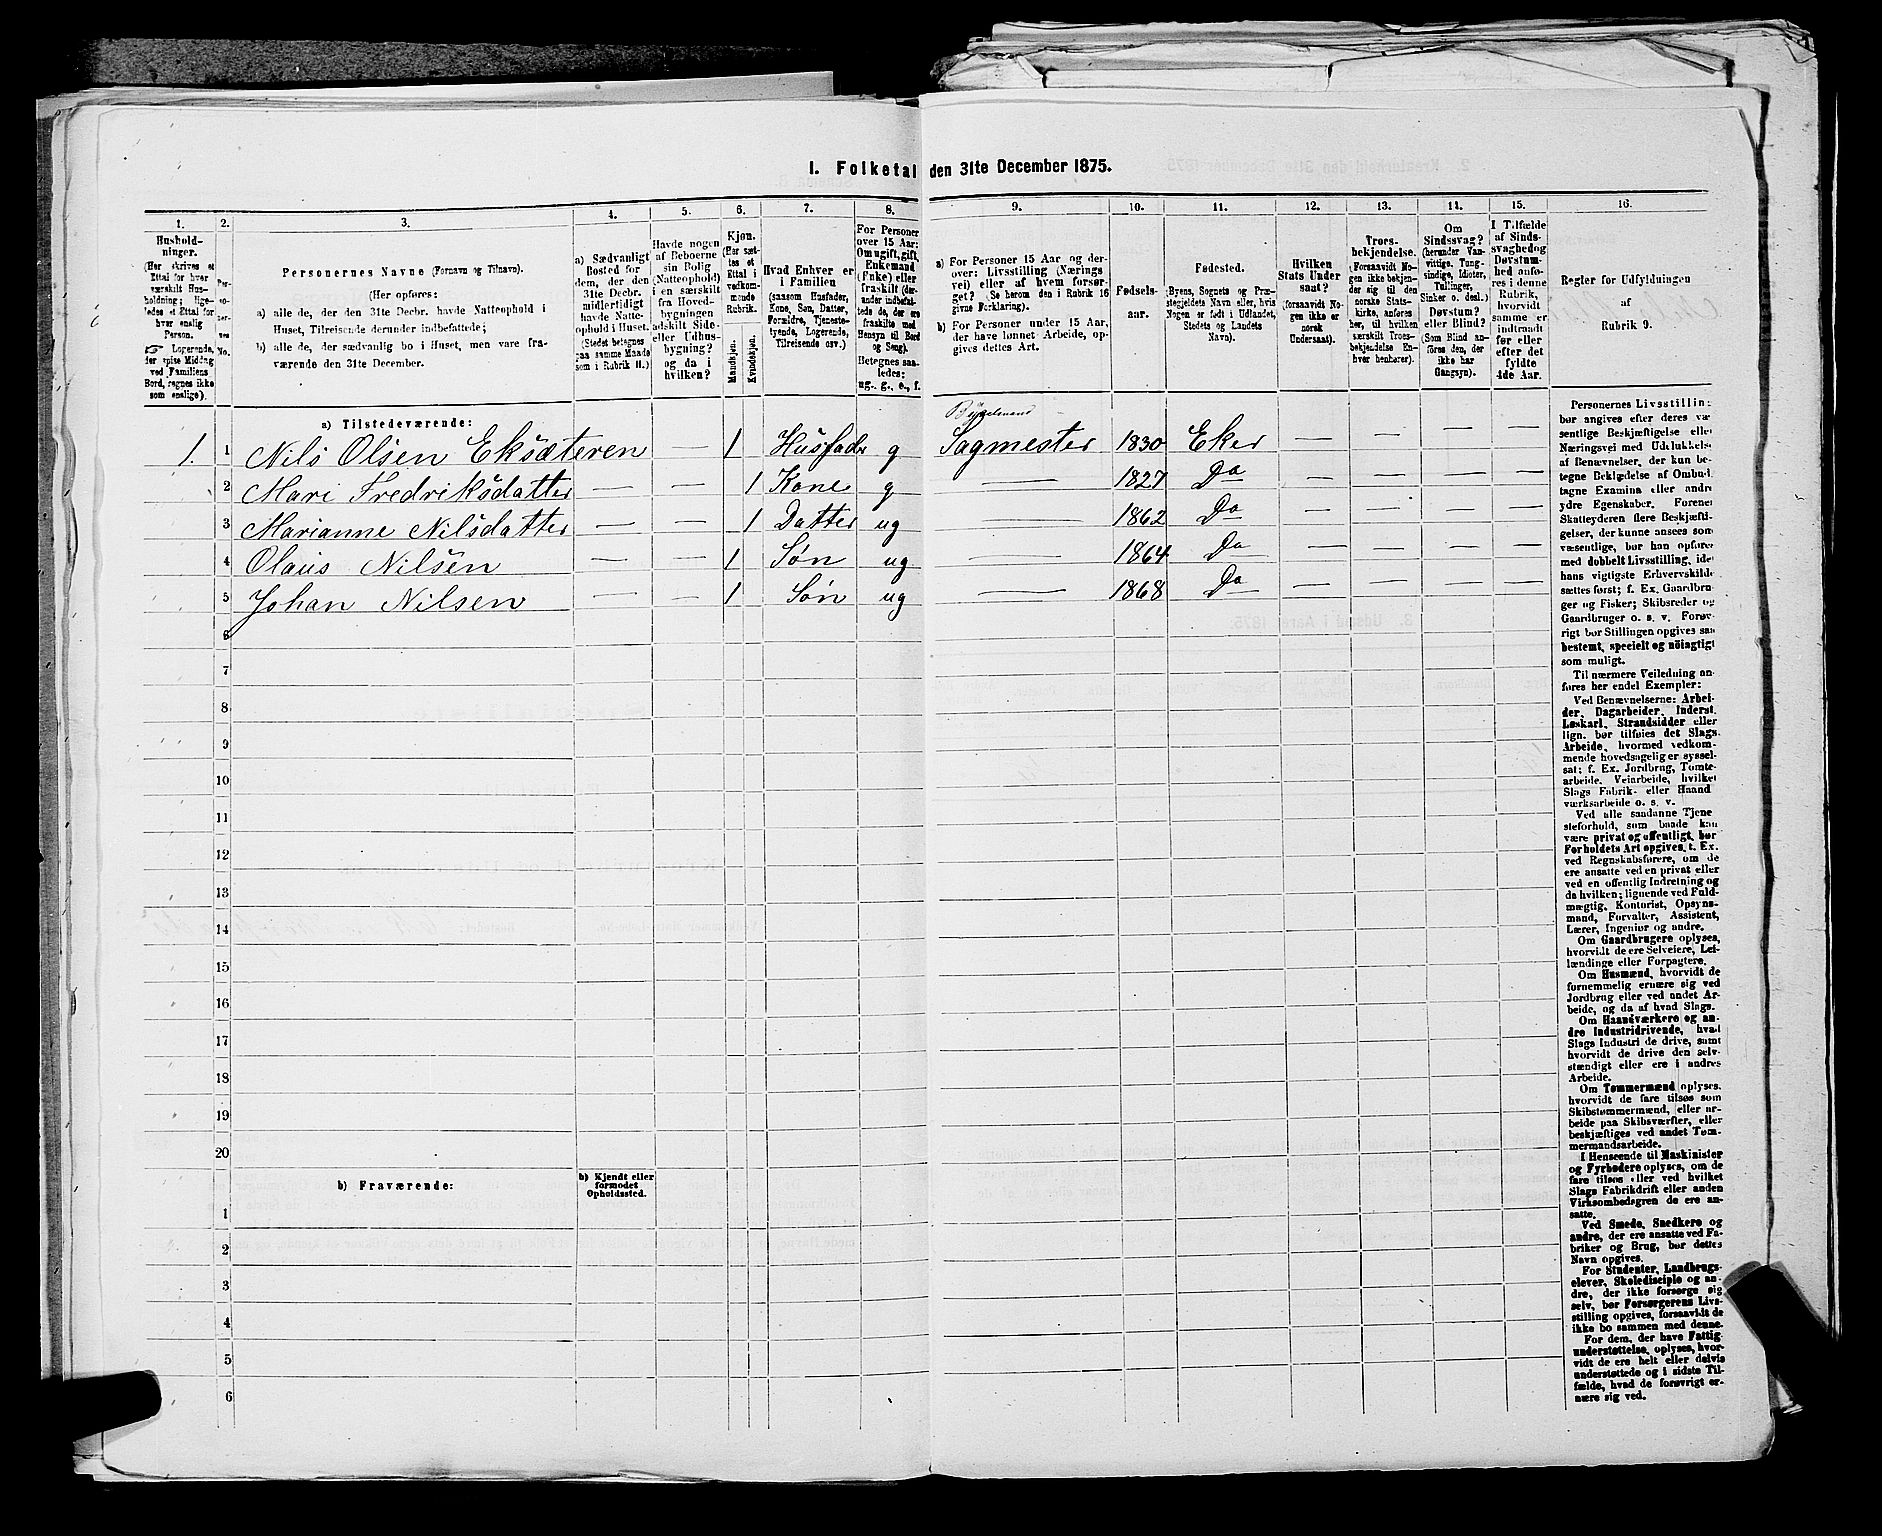 I. Folketal den 31te December 1875.
1. 2. 3. 4. 5. 6. 7. 8. 9. 10. 11. 12. 13. 14. 15. 16.
Hushold-
ninger.
(Her skrives et
Ettal for hver
særskilt Hus-
holdning; lige-
ledes et Ettal for
hver enslig
Person.
☞ Logerende,
der spise Middag
ved Familiens
Bord, regnes ikke
som enslige).
Per-
so-
ner-
nes
No.
Personernes Navne (Fornavn og Tilnavn).
(Her opføres:
a) alle de, der den 31te Decbr. havde Natteophold i
Huset, Tilreisende derunder indbefattede;
b) alle de, der sædvanlig bo i Huset, men vare fra-
værende den 31te December.
a) Sædvanligt
Bosted for
dem, der den
31te Decbr.
midlertidigt
havde Natte-
ophold i Huset.
(Stedet betegnes
paa samme Maade
som i Rubrik 11.)
Havde nogen
af Beboerne
sin Bolig
(Natteophold)
i en særskilt
fra Hoved-
bygningen
adskilt Side-
eller Udhus-
bygning?
og da i
hvilken?
Kjøn.
(Her sæt-
tes et
Ettal i
vedkom-
mende
Rubrik.
Mandkjøn.
Kvindekjøn.
Hvad Enhver er
i Familien
(saasom Husfader,
Kone, Søn, Datter,
Forældre, Tjeneste-
tyende, Logerende,
Tilreisende osv.)
For Personer
over 15 Aar:
Om ugift, gift,
Enkemand
(Enke) eller
fraskilt (der-
under indbefat-
tede de, der ere
fraskilte med
Hensyn til Bord
og Seng).
Betegnes saa-
ledes:
ug., g., e., f.
a) For Personer 15 Aar og der-
over: Livsstilling (Nærings
vei) eller af hvem forsør-
get? (Se herom den i Rubrik 16
givne Forklaring).
b) For Personer under 15 Aar,
der have lønnet Arbeide, op-
gives dettes Art.
Fødsels-
aar.
Fødested.
(Byens, Sognets og Præ-
stegjeldets Navn eller, hvis
Nogen er født i Udlandet,
Stedets og Landets
Navn).
Hvilken
Stats Under
saat?
(forsaavidt No-
gen ikke er
norsk
Undersaat).
Troes-
bekjendelse.
(Forsaavidt No-
gen ikke bekjen-
der sig til den
norske Stats-
kirke, anføres
her, til hvilken
særskilt Troes-
bekjendelse En-
hver henhører).
Om
Sindssvag?
(herunder Van-
vittige, Tung-
sindige, Idioter,
Tullinger,
Sinker o. desl.)
Døvstum?
eller Blind?
(Som Blind an-
føres den, der
ikke har
Gangsyn).
I Tilfælde
af Sinds-
svaghed og
Døvstum-
hed anfø-
res i denne
Rubrik,
hvorvidt
samme er
indtraadt
før eller
efter det
fyldte
4de Aar.
Regler for Udfyldningen
af
Rubrik 9.
a) Tilstedeværende:
Sagmester
1. 1 Nils Olsen Eksæteren — 1 Husfader g 1830 Eker — — — —
2 Mari Fredriksdatter — — 1 Kone g — 1827 Do — — — —
3 Marianne Nilsdatter — — 1 Datter ug — 1862 Do — — — —
4 Olaus Nilsen — — 1 Søn ug — 1864 Do — — — —
5 Johan Nilsen — — 1 Søn ug — 1868 Do — — — —
6
7
8
9
10
11
12
13
14
15
16
17
18
19
20
b) Fraværende:
b) Kjendt eller
formodet
Opholdssted.
1
2
3
4
5
6
Personernes Livsstilling
bør angives efter deres væ
sentlige Beskjæftigelse eller
Næringsvei med Udelukkelse
af Benævnelser, der kun be
tegne Beklædelse af Ombud,
tagne Examina eller andre
ydre Egenskaber. Forener
Skatteyderen flere Beskjæfti-
gelser, der kunne ansees som
væsentlige, bør han opføres
med dobbelt Livsstilling, idet
hans vigtigste Erhvervskilde
sættes først; f. Ex. Gaardbru-
ger og Fisker; Skibsreder og
Gaardbruger o. s. v. Forøv-
rigt bør Stillingen opgives saa
bestemt, specielt og nöiagtigt
som muligt.
Til nærmere Veiledning an-
føres her endel Exempler:
Ved Benævnelserne: Arbei-
der, Dagarbeider, Inderst,
Løskarl, Strandsidder eller
lign. bør tilføies det Slags
Arbeide, hvormed vedkom-
mende hovedsagelig er syssel-
sat; f. Ex. Jordbrug, Tomte-
arbeide, Veiarbeide, hvilket
Slags Fabrik- eller Haand
værksarbeide o. s. v.
Ved alle saadanne Tjene
steforhold, som baade kan
være privat og offentligt, bør
Forholdets Art opgives, t. Ex.
ved Regnskabsførere, om de
ere ansatte ved en privat eller
ved en offentlig Indretning og
da hvilken; lignende ved Fuld-
mægtig, Kontorist, Opsyns-
mand, Forvalter, Assistent,
Lærer, Ingeniør og andre.
Om Gaardbrugere oplyses,
hvorvidt de ere Selveiere, Lei-
lændinge eller Forpagtere.
Om Husmænd, hvorvidt de
fornemmelig ernære sig ved
Jordbrug eller ved andet Ar-
beide, og da af hvad Slags.
Om Haandværkere og an-
dre Industridrivende, hvad
Slags Industri de drive, samt
hvorvidt de drive den selv-
stændigt eller ere i andres
Arbeide.
Om Tømmermænd oplyses,
hvorvidt de fare tilsøs som
Skibstømmermænd, eller ar-
beide paa Skibsværfter, eller
beskjæftiges ved andet Tøm-
mermandsarbeide.
I Henseende til Maskinister
og Fyrbødere oplyses, om de
fare tilsøs eller ved hvilket
Slags Fabrikdrift eller anden
Virksomhedsgren de ere an-
satte.
Ved Smede, Snedkere og
andre, der ere ansatte ved Fa-
briker og Brug, bør dettes
Navn opgives.
For Studenter, Landbrugs-
elever, Skoledisciple og an-
dre, der ikke forsørge sig
selv, bør Forsørgerens Livs-
stilling opgives, forsaavidt de
ikke bo sammen med denne.
For dem, der have Fattig-
understøttelse, oplyses, hvor-
vidt de ere helt eller delvis
understøttede og i sidste Til-
fælde, hvad de forøvrigt er-
nære sig ved.